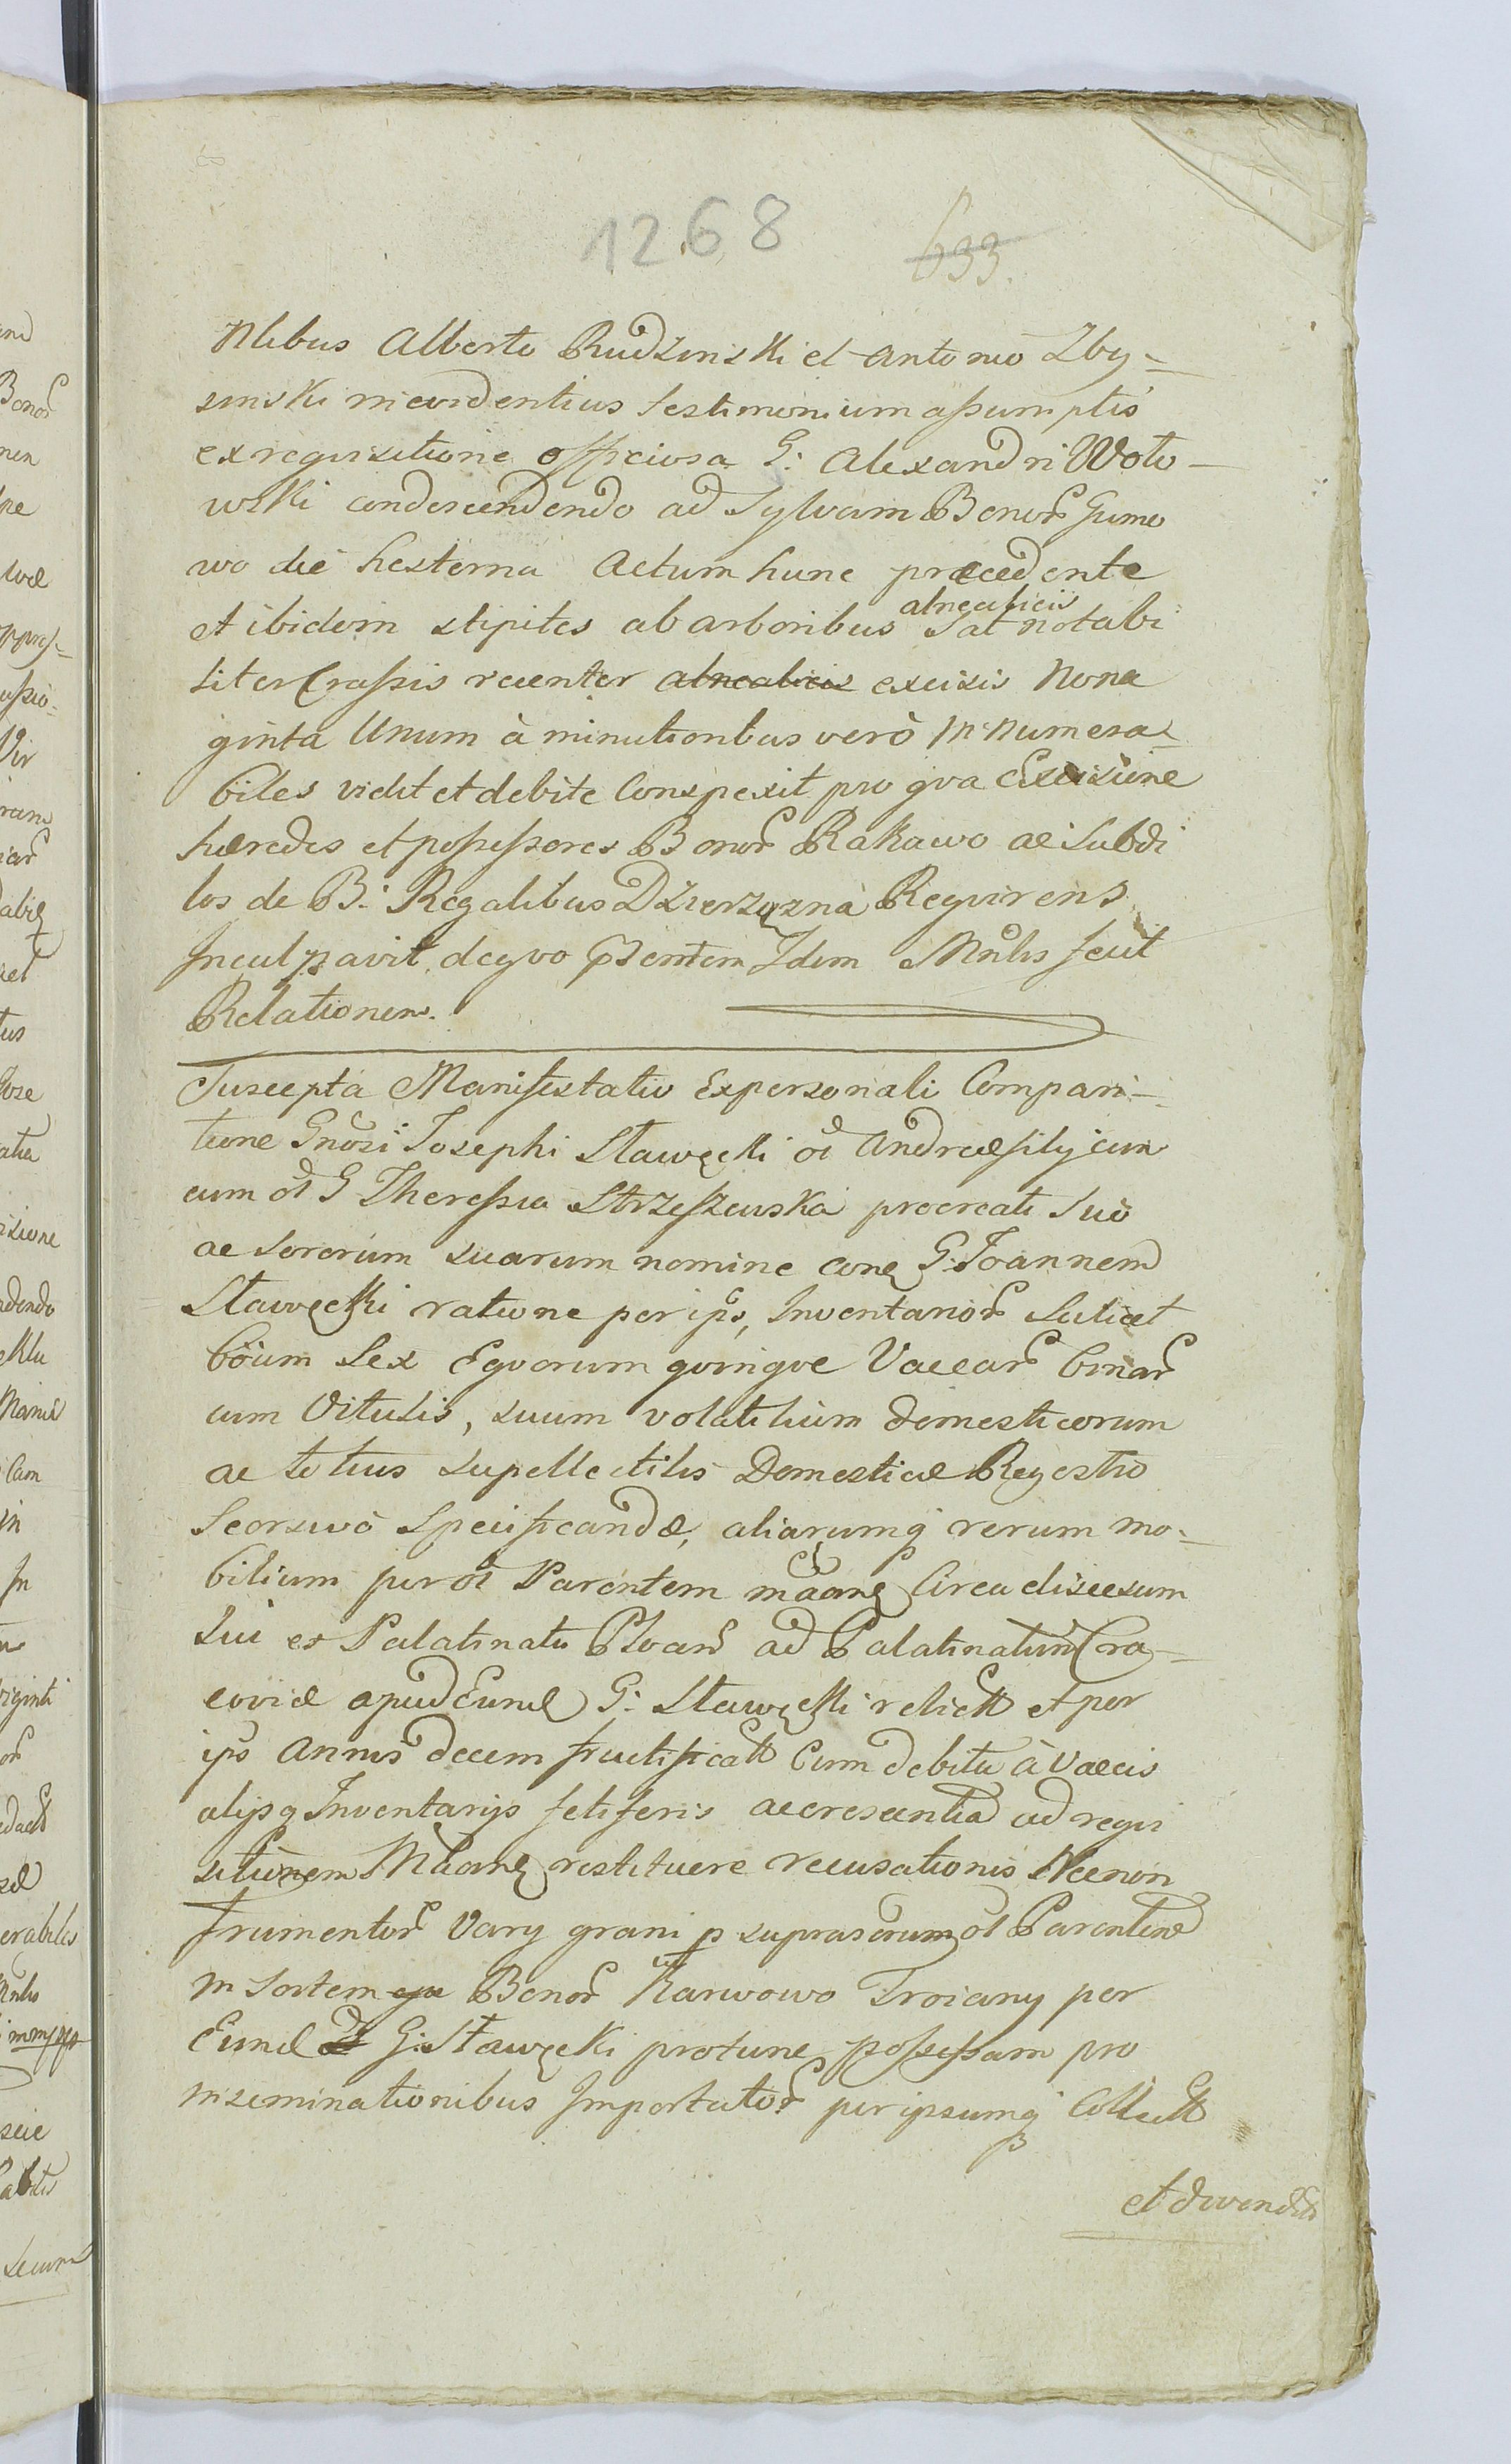 1268 633.
Nlibus Alberto Rudzinski et Antonio Zby-
zinski in evidentius testimonium assumptis
ex requisitione officiosa G: Alexandri Woto-
wski condescendendo ad Sylvam Bonor Gumo
wo die hesterna Actum hunc præcedente
et ibidem stipites ab arboribus alnealicis Sat notabi
liter Crassis recenter alnealicis excisis Nona
ginta Unum à minutioribus verò innumera-
biles vidit et debite Conspexit pro qva Excisione
hæredes et possessores Bonor Rakowo ac Subdi
tos de B: Regalibus Dzierzązna Reqvirens
Inculpavit, de qvo psentem Idem Mnlis fecit
Relationem.
Suscepta Manifestatio Ex personali Compari-
tione Gnosi Josephi Stawęcki ol Andreæ filij cum
eum ol G Theressia Strzeszewska procreati Suo
ac Sororum suarum nomine conq G: Joannem
Stawęcki ratione per ips, Inventarior Scilicet
boum Sex Eqvorum qvinqve Vaccar binar
cum Vitulis, suum volatilium domesticorum
ac totius supellectilis Domesticæ Regestro
Seorsivo Specificandæ, aliarumq rerum mo-
bilium per ol Parentem Circa discessum
Sui ex Palatinatu Plocen ad Palatinatum Cra-
coviæ apud Eund G: Stawęcki relict et per
ips Annis decem fructificat Cum debita à Vaccis
alijsq Inventarijs fetiferis accrescentia ad reqvi
sitionem restituere recusationis Necnon
frumentor Varij grani p suprascrium ol Parentem
in Sortem Bonor Karwowo Troiany per
Eund G: Stawęcki protunc possessam pro
inseminationibus Importator per ipsumq Collect
et divendit